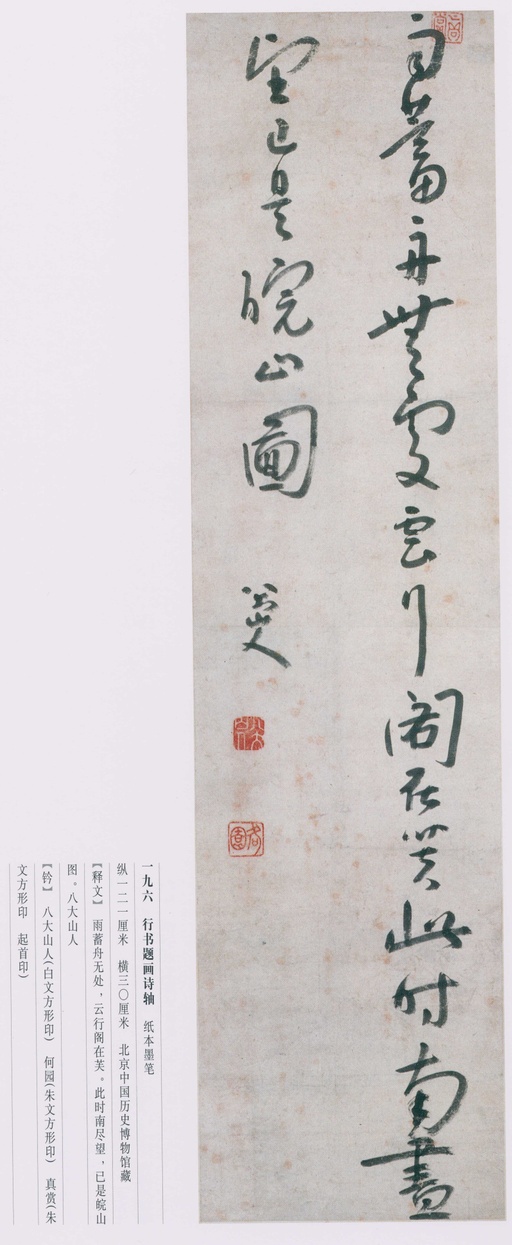 雨蓄舟無處雲行閣在芙此时南盡
望已是皖山圖
八大山人
八大山人
何園
一九六 行书题画诗轴 纸本墨笔
纵一二一厘米 横三〇厘米 北京中国历史博物馆藏
【释文】 雨蓄舟无处，云行阁在芙。此时南尽望，已是皖山
图。八大山人
【钤】 八大山人(白文方形印) 何园(朱文方形印) 真赏(朱
文方形印 起首印)